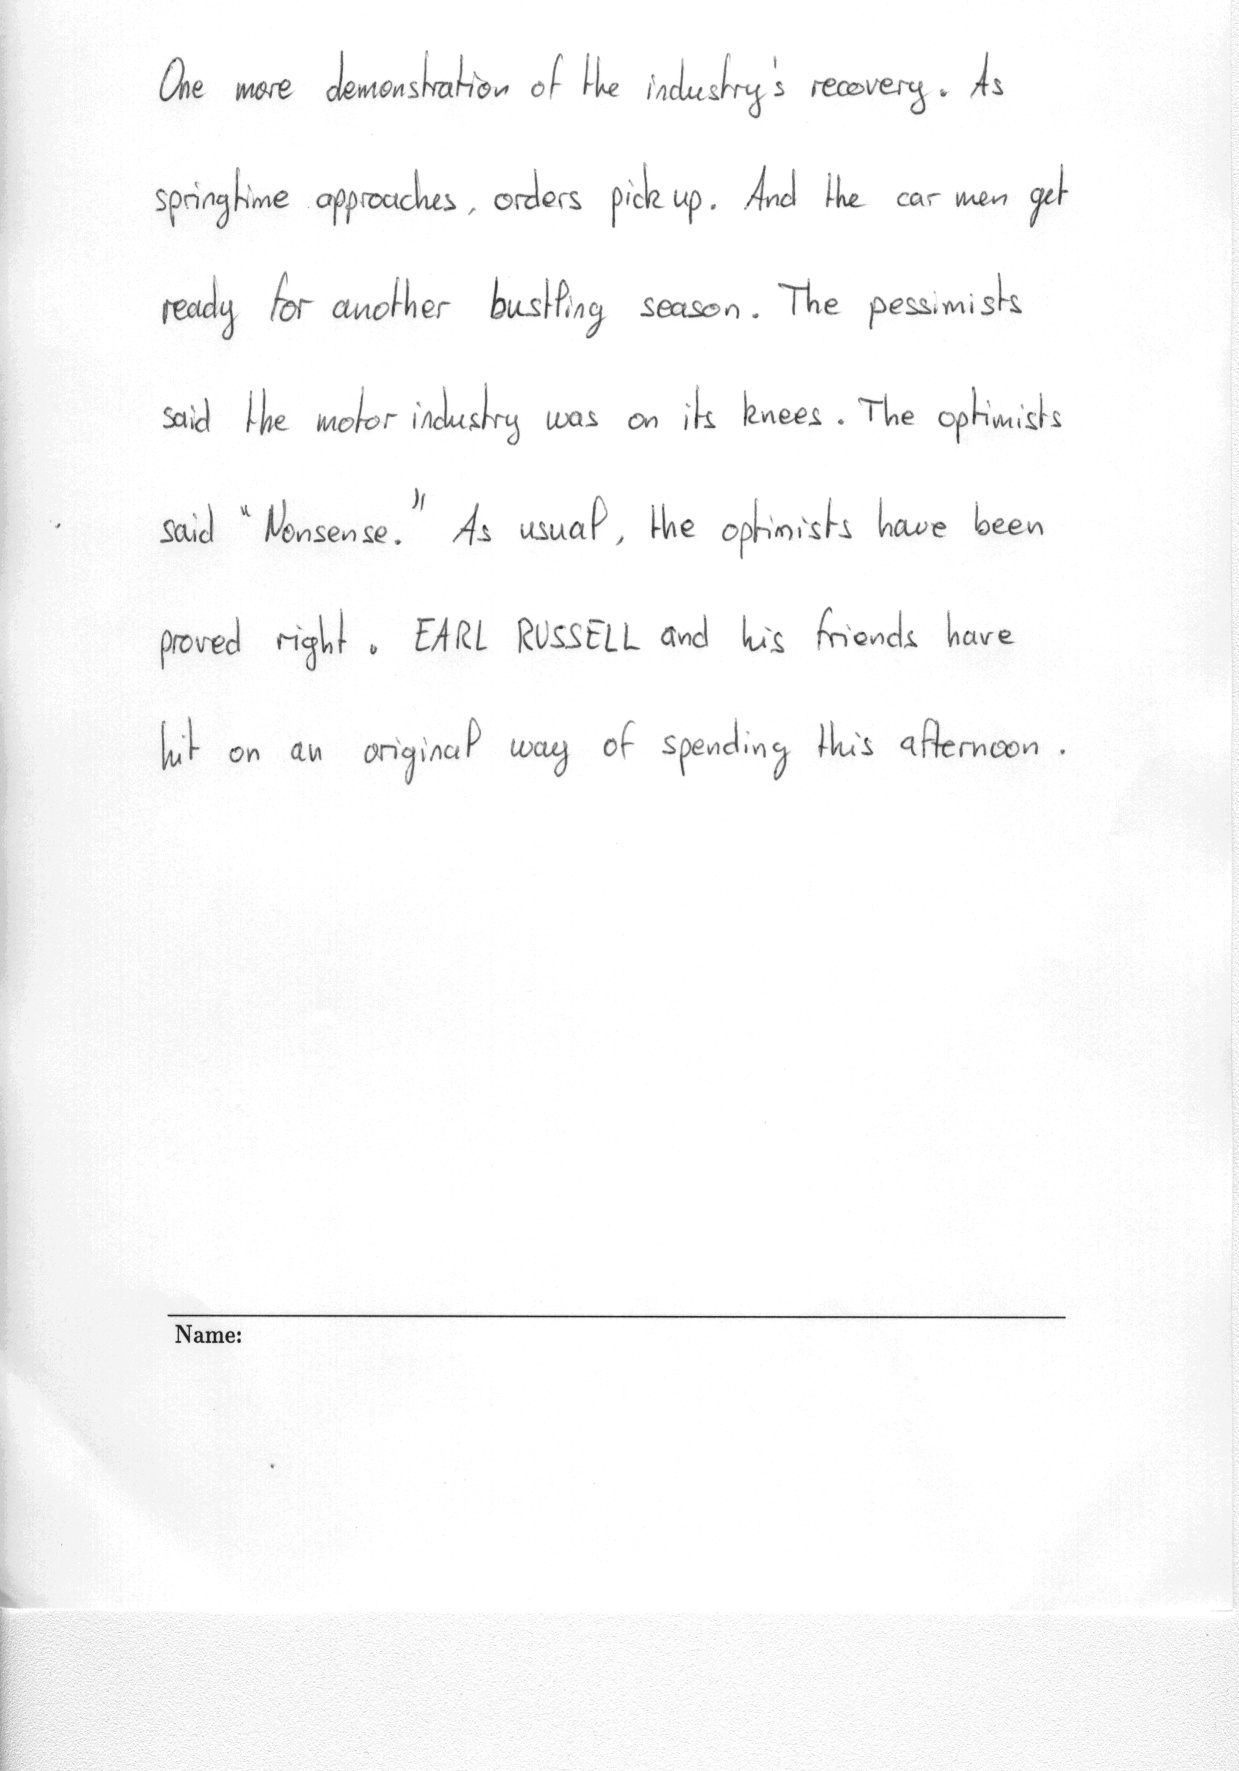 One more demonstration of the industry's recovery. As
springtime approaches, orders pick up. And the car men get
ready for another bustling season. The pessimists
said the motor industry was on its knees. The optimists
said "Nonsense." As usual, the optimists have been
proved right. EARL RUSSELL and his friends have
hit on an original way of spending this afternoon.
Name: